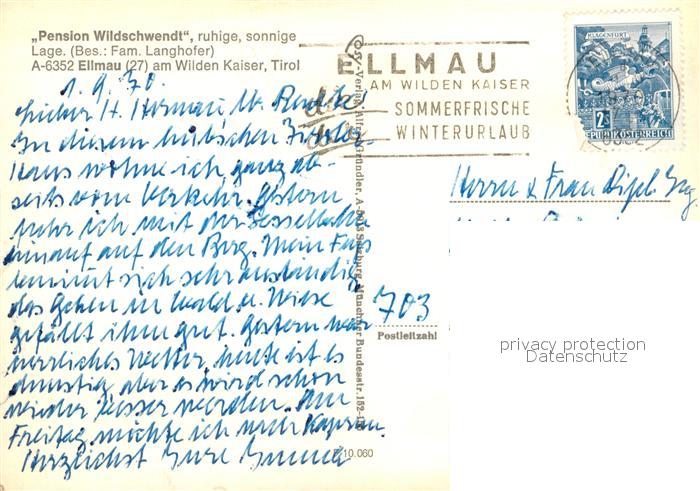 „Pension Wildschwendt“, ruhige, sonnige
Lage. (Bes.: Fam. Langhofer)
A-6352 Ellmau (27) am Wilden Kaiser, Tirol
1.9.70.
Lieber H. Herman u.
In diesem hübschen
Haus wohne ich ganz ab-
seits vom Verkehr. Gestern
fuhr ich mit der Sesselbahn
hinauf auf den Berg. Mein Fuss
benimmt sich sehr anständig
das Gehen in Wald u. Wiese
gefällt ihm gut. Gestern war
herrliches Wetter, heute ist es
dunstig aber es wird schon
wieder besser werden. Am
Freitag möchte ich nach Kaprun.
Herzlichst Eure
ELLMAU
AM WILDEN KAISER
SOMMERFRISCHE
WINTERURLAUB
KLAGENFURT
2S
REPUBLIK ÖSTERREICH
Herrn u Frau Dipl. Ing.
703
Postleitzahl
privacy protection
Datenschutz
Verlag Alfred Gründler, A-5023 Salzburg, Münchner Bundesstr. 152
10.060